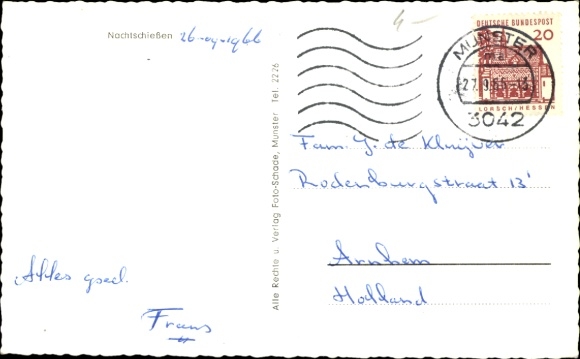 Nachtschießen 26-09-1966
4-
DEUTSCHE BUNDESPOST
20
LORSCH/HESSEN
MUNSTER
3042
Alle Rechte u. Verlag Foto-Schade, Munster Tel. 2226
Fam. J. de Kluijver
Rodenburgstraat 13'
Arnhem
Holland
Alles goed.
Frans